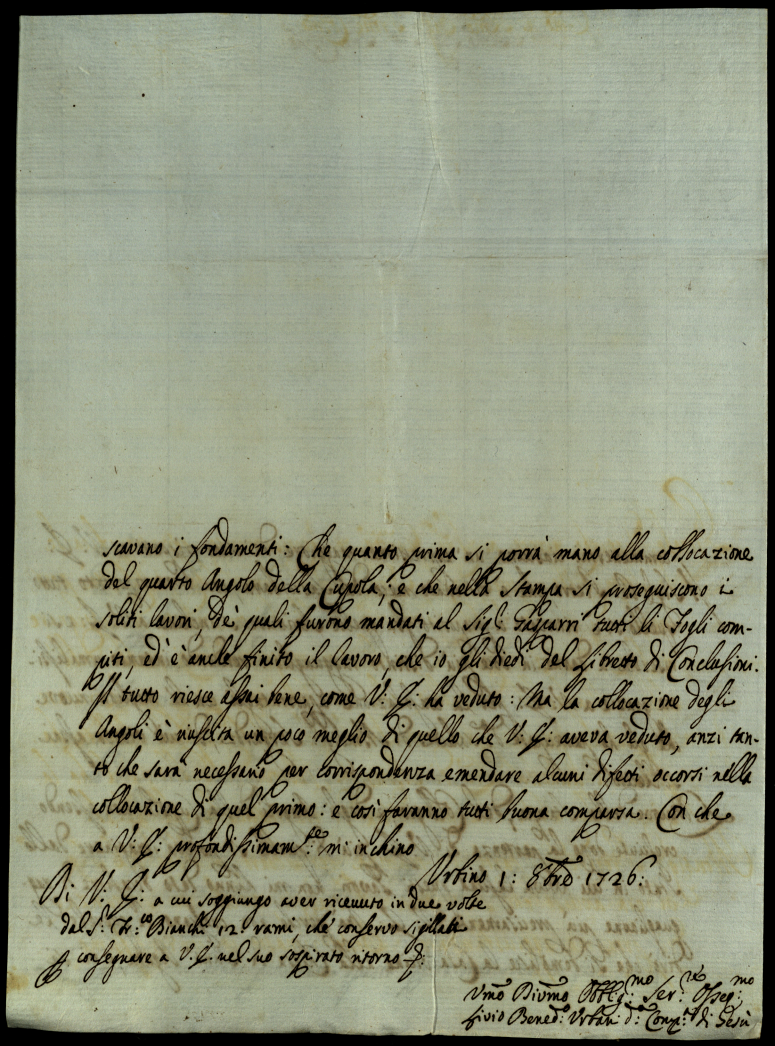 scavano i fondamenti: Che quanto prima si porrà mano alla collocazione
del quarto Angolo della Cupola; e che nella Stampa si proseguiscono i
soliti lavori, de' quali furono mandati al Sig.r Gasparri tutti li Fogli com-
piti, ed è anche finito il lavoro, che io gli diedi del Libretto di Conclusioni.
Il tutto riesce assai bene, come V: S: ha veduto: Ma la collocazione degli
Angoli è riuscita un poco meglio di quello che V: S: aveva veduto, anzi tan-
to che sarà necessario per corrispondenza emendare alcuni difetti occorsi nella
collocazione di quel primo: e così faranno tutti buona comparsa. Con che
a V: S: profondissimam:te m'inchino
Urbino 1: 8bre 1726:
Di V: S: a cui soggiungo aver ricevuto in due volte
dal S:r Fr:co Bianch: 12 rami, che conservo sigillati
consegnare a V. S. nel suo sospirato ritorno
Umo Divmo Obblg:mo Ser:re Osseq:mo
Livio Bened:o Urban: d: Comp:a di Gesù